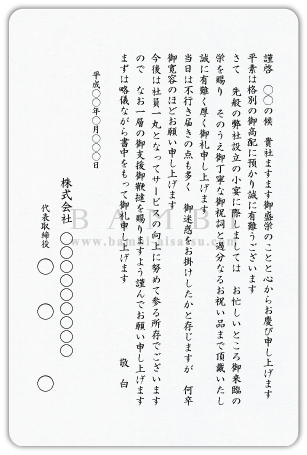 謹啓　〇〇の候　貴社ますます御盛栄のことと心からお慶び申し上げます
平素は格別の御高配に預かり誠に有難うございます
さて　先般の弊社設立の小宴に際しましては　お忙しいところ御来臨の
栄を賜り　そのうえ御丁寧な御祝詞と過分なるお祝い品まで頂戴いたし
誠に有難く厚く御礼申し上げます
当日は不行き届きの点も多く　御迷惑をお掛けしたかと存じますが　何卒
御寛容のほどお願い申し上げます
今後は社員一丸となってサービスの向上に努めて参る所存でございます
ので　なお一層の御支援御鞭撻を賜りますよう謹んでお願い申し上げます
まずは略儀ながら書中をもって御礼申し上げます
敬　白
平成〇〇年〇月〇〇日
株式会社　〇〇〇〇〇〇〇〇
代表取締役　〇　〇　〇
BAMBI